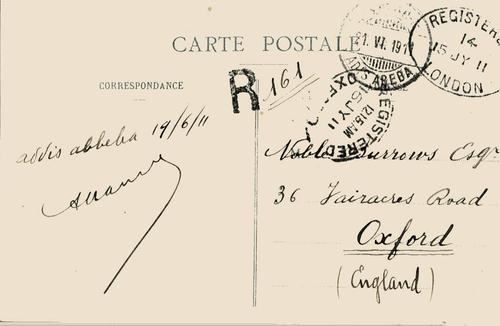 CARTE POSTALE
CORRESPONDANCE
R 161
21. VI. 1911
REGISTERED
14
15 JY 11
LONDON
REGISTERED
12.15AM
16 JY 11
OXFORD
addis abbeba 19/6/11
Noble Burrows Esqr
36 Fairacres Road
Oxford
(England)